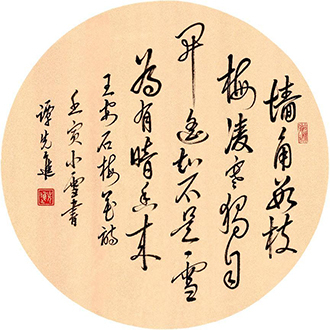 墙角数枝
梅凌寒独自
开遥知不是雪
为有暗香来
王安石梅花诗
壬寅小雪书
谭先进